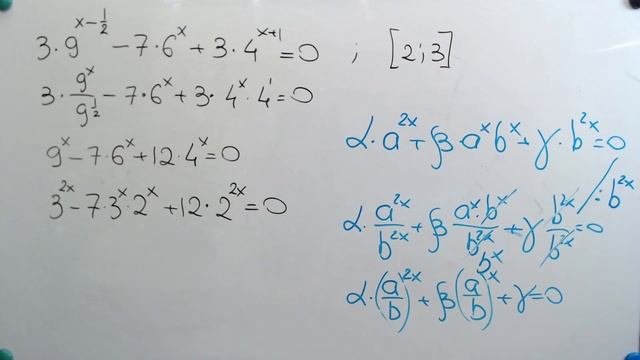 3·9^(x-1/2) - 7·6^x + 3·4^(x+1) = 0 ; [2;3]
3·9^x/9^(1/2) - 7·6^x + 3·4^x·4^1 = 0
9^x - 7·6^x + 12·4^x = 0
3^(2x) - 7·3^x·2^x + 12·2^(2x) = 0
α·a^(2x) + β·a^x b^x + γ·b^(2x) = 0 /:b^(2x)
α·a^(2x)/b^(2x) + β a^x·b^x/b^(2x) + γ b^(2x)/b^(2x) = 0
b^x
α·(a/b)^(2x) + β(a/b)^x + γ = 0